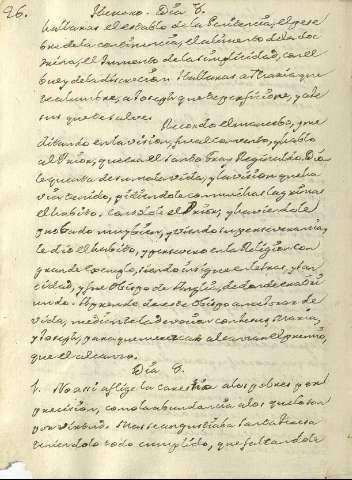 26. Henero. Dia 7.
hallaras el establo de la Penitencia, el pese
bre de la continencia, el alimento de la doc
trina, el Jumento de la simplicidad, con el
buey de la discrecion. Hallaras a Maria que
te alumbre, a Joseph que te perficione, y a Je
sus que te salve.
Recordo el mancebo, que
dibando en la vision, fue al convento, y hablo
al Prior, que era el santo Fray Reginaldo. Dio
le quenta de su mala vida, y la vision que ha
via tenido, pidiendole con muchas lagrimas
el habito. Consolole el Prior, y haviendole
probado muy bien, y viendo su perseverancia,
le dio el habito, y persevero en la Religion con
grande exemplo, siendo insigne en letras, y san
tidad, y fue Obispo de
de donde era ori
undo. Aprende de este Obispo a mejorar de
vida, mediante la devocion con Jesus, Maria,
y Joseph, para que merezcas alcanzar el premio,
que el alcanzo.
Dia 8.
1. No assi aflige la carestia a los pobres por
precision, como la abundancia a los que lo son
por virtud. Mas se angustiaba Santa Teresa
teniendolo todo cumplido, que faltandole